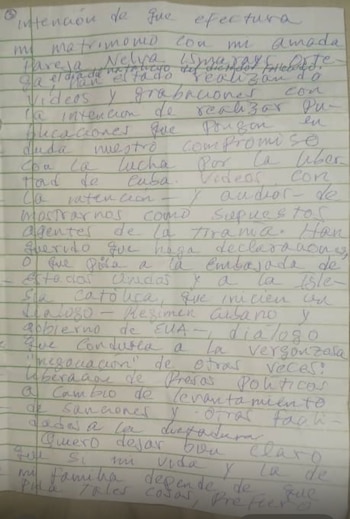 intención de que efectura
mi matrimonio con mi amada
pareja Nelva Ismarays Orte-
ga, han estado realizando
videos y grabaciones con
la intención de realizar pu-
blicaciones que pongan en
duda nuestro compromiso
con la lucha por la liber-
tad de Cuba. Videos con
la intención - y audios - de
mostrarnos como supuestos
agentes de la tiranía. Han
querido que haga declaraciones,
o que pida a la embajada de
Estados Unidos y a la Igle-
sia católica, que inicien un
diálogo - Régimen Cubano y
gobierno de EUA -, diálogo
que conduzca a la vergonzosa
"negociación" de otras veces:
liberación de Presos Políticos
a cambio de levantamiento
de sanciones y otras facili-
dades a la dictadura
Quiero dejar bien claro
que si mi vida y la de
mi familia depende de que
pida tales cosas, prefiero